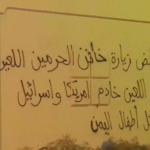 زيارة خائن الحرمين اللعين
اللعين خادم امريكا واسرائيل
أطفال اليمن